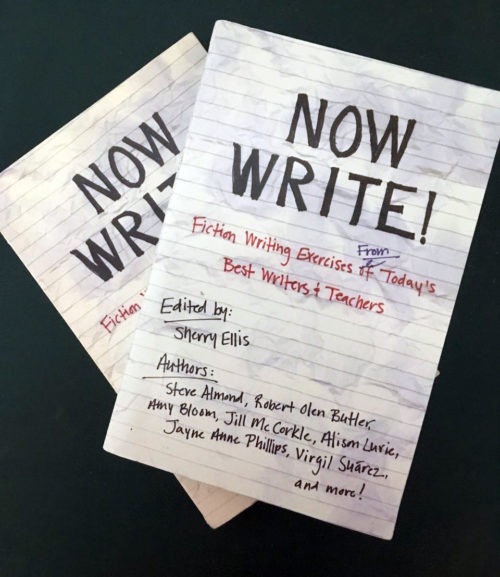 NOW
WRITE!
Fiction Writing Exercises of From Today's
Best Writers & Teachers
Edited by:
Sherry Ellis
Authors:
Steve Almond, Robert Olen Butler,
Amy Bloom, Jill McCorkle, Alison Lurie,
Jayne Anne Phillips, Virgil Suárez,
and more!
NOW
WRIT
Fiction